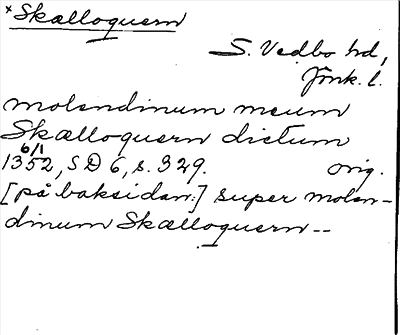 *Skælloquern
S. Vedbo hd,
Jönk. l.
molendinum meum
Skælloquern dictum
6/1
1352, SD 6, s. 329. orig.
[på baksidan:] super molen-
dinum Skælloquern --